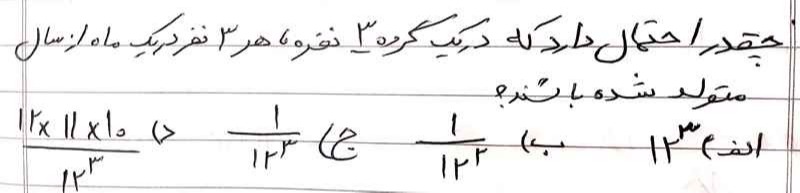 چقدر احتمال دارد که در یک گروه ۳ نفره، هر ۳ نفر در یک ماه از سال
متولد شده باشند؟
الف) ۱۲^۳ ب) ۱/۱۲^۲ ج) ۱/۱۲^۳ د) ۱۲×۱۱×۱۰/۱۲^۳